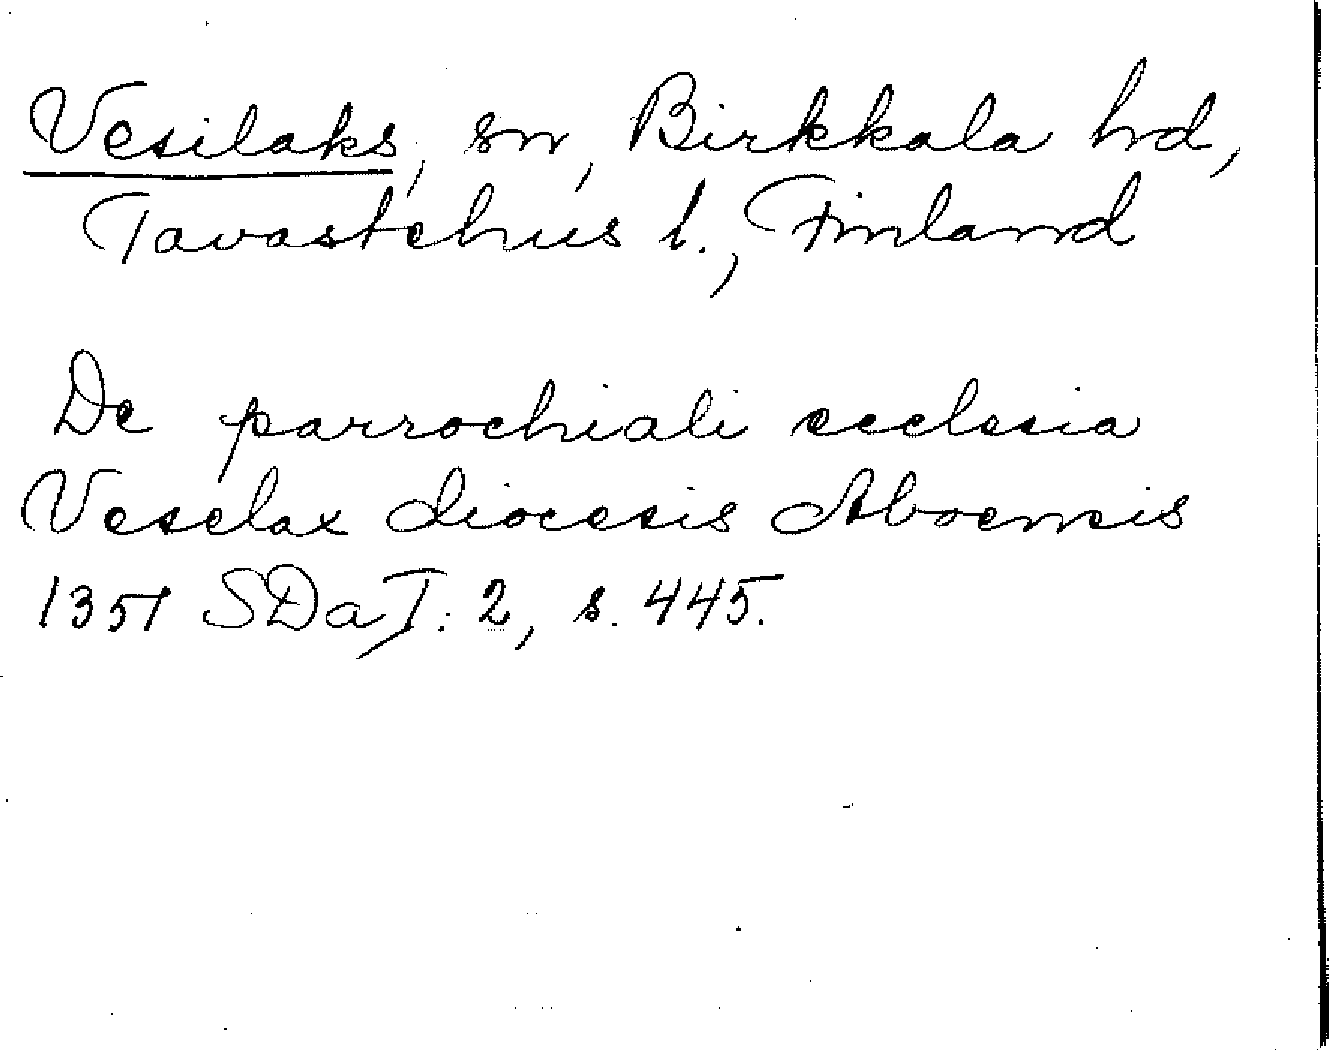 Vesilaks, sn, Birkkala hd,
Tavastehus l., Finland
De parrochiali ecclesia
Veselax diocesis Aboensis
1351 SDaI: 2, s. 445.